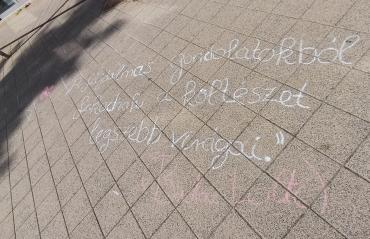 "Fájdalmas gondolatokból
fakadnak a költészet
legszebb virágai."